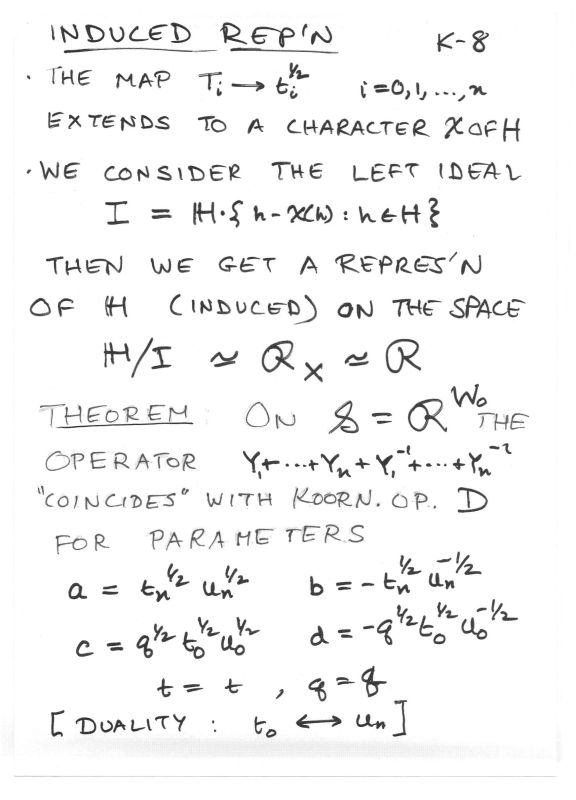 INDUCED REP'N K-8
· THE MAP Tᵢ → tᵢ^½ i=0,1,...,n
EXTENDS TO A CHARACTER χ OF H
· WE CONSIDER THE LEFT IDEAL
I = ℍ·{h-χ(h) : h∈H}
THEN WE GET A REPRES'N
OF ℍ (INDUCED) ON THE SPACE
ℍ/I ≃ R_X ≃ R
THEOREM ON S = R^W₀ THE
OPERATOR Y₁+···+Yₙ+Y₁⁻¹+···+Yₙ⁻¹
"COINCIDES" WITH KOORN. OP. D
FOR PARAMETERS
a = tₙ^½ uₙ^½ b = -tₙ^½ uₙ^-½
c = q^½ t₀^½ u₀^½ d = -q^½ t₀^½ u₀^-½
t = t , q = q
[DUALITY : t₀ ↔ uₙ]